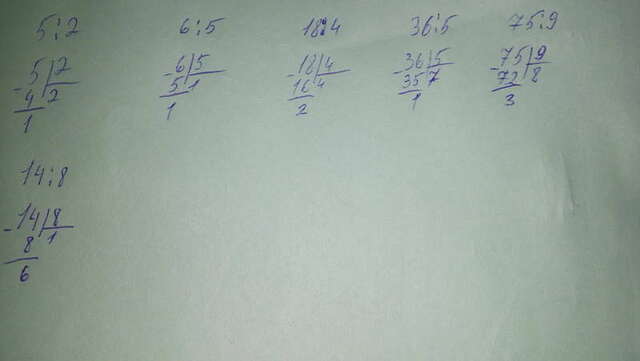 5:2 6:5 18:4 36:5 75:9
-5|2 -6|5 -18|4 -36|5 -75|9
4 2 5 1 16 4 35 7 72 8
1 1 2 1 3
14:8
-14|8
8 1
6